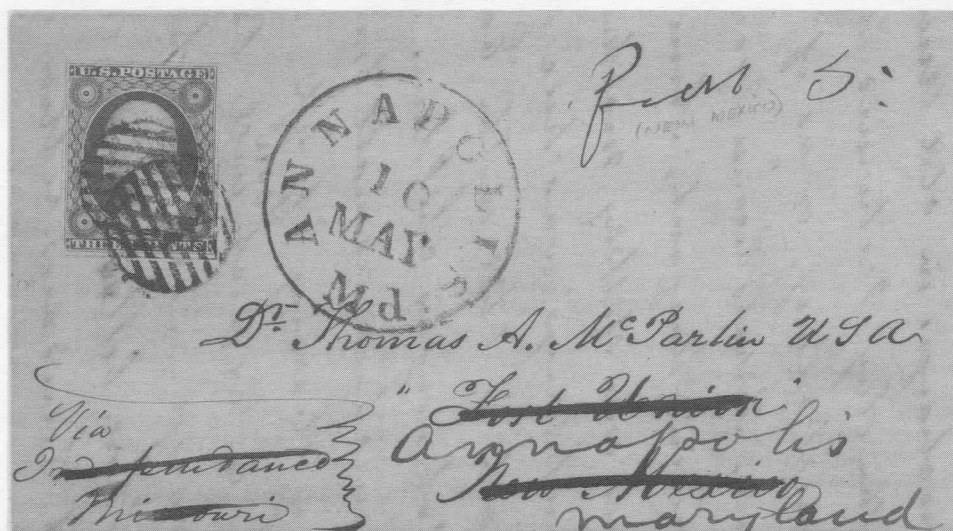 U.S. POSTAGE
THREE CENTS
ANNAPOLIS
10
MAY
Md
(NEW MEXICO)
Dr. Thomas A. McParlin USA
" Fort Union
Annapolis
New Mexico
Maryland
Via
Independance
Missouri